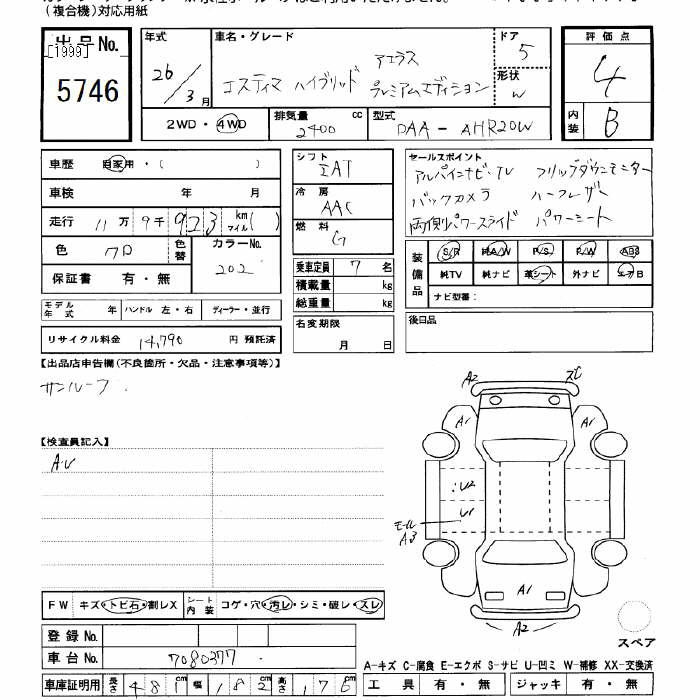 (複合機)対応用紙
出品No.
[1999]
5746
年式
26/3月
車名・グレード
アエラス
エスティマ ハイブリッド プレミアムエディション
ドア
5
形状
W
評価点
4
内装
B
2WD・4WD
排気量
2400 cc
型式
DAA-AHR20W
車歴 自家用・( )
車検 年 月
走行 11万9千923 km マイル( )
色
クロ
色替
カラーNo.
202
保証書 有・無
モデル年式 年 ハンドル 左・右 ディーラー・並行
リサイクル料金 14,790 円 預託済
シフト
IAT
冷房
AAC
燃料
G
乗車定員 7 名
積載量 kg
総重量 kg
名変期限
月 日
セールスポイント
アルパインナビ・TV フリップダウンモニター
バックカメラ ハーフレザー
両側パワースライド パワーシート
装備品
S/R 純A/W P/S P/W ABS
純TV 純ナビ 革シート 外ナビ エアB
ナビ型番:
後日品
【出品店申告欄(不良箇所・欠品・注意事項等)】
サンルーフ
【検査員記入】
AU
A2
A1
A1
U2
U1
モール
A3
A1
A2
スペア
FW キズ・トビ石・割レX シート内装 コゲ・穴・汚レ・シミ・破レ・スレ
登録No.
車台No. 7080377
車庫証明用 長さ 481cm 幅 182cm 高さ 176
A-キズ C-腐食 E-エクボ S-サビ U-凹ミ W-補修 XX-交換済
工具 有・無 ジャッキ 有・無